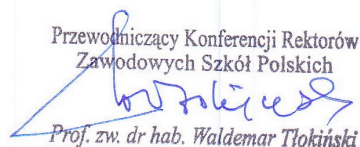 Przewodniczący Konferencji Rektorów
Zawodowych Szkół Polskich
Prof. zw. dr hab. Waldemar Tłokiński